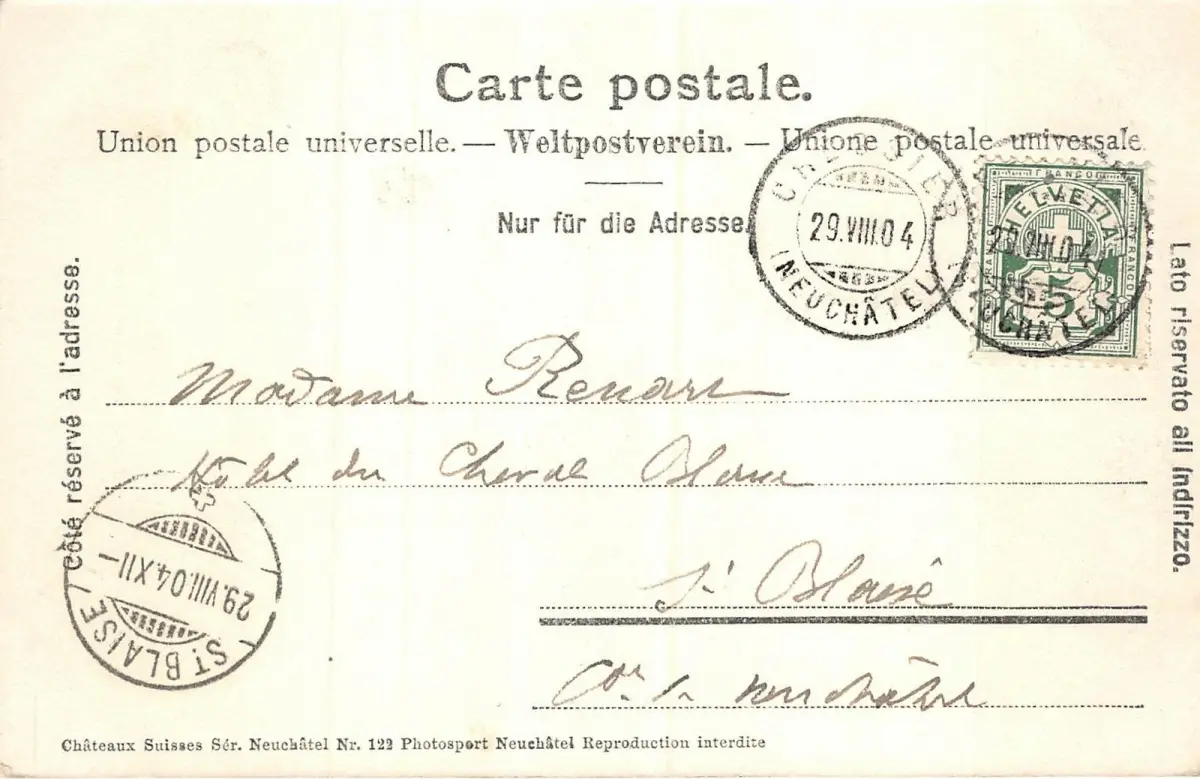 Carte postale.
Union postale universelle. — Weltpostverein. — Unione postale universale
Nur für die Adresse.
Côté réservé à l'adresse.
Lato riservato all indirizzo.
CRESSIER
29.VIII.04
(NEUCHÂTEL)
FRANCO
HELVETIA
FRANCO
5
29.VIII.04
NEUCHÂTEL
Madame Renard
Hôtel du Cheval Blanc
St Blaise
Cton de Neuchâtel
29.VIII.04.XII—
ST BLAISE
Châteaux Suisses Sér. Neuchâtel Nr. 122 Photosport Neuchâtel Reproduction interdite